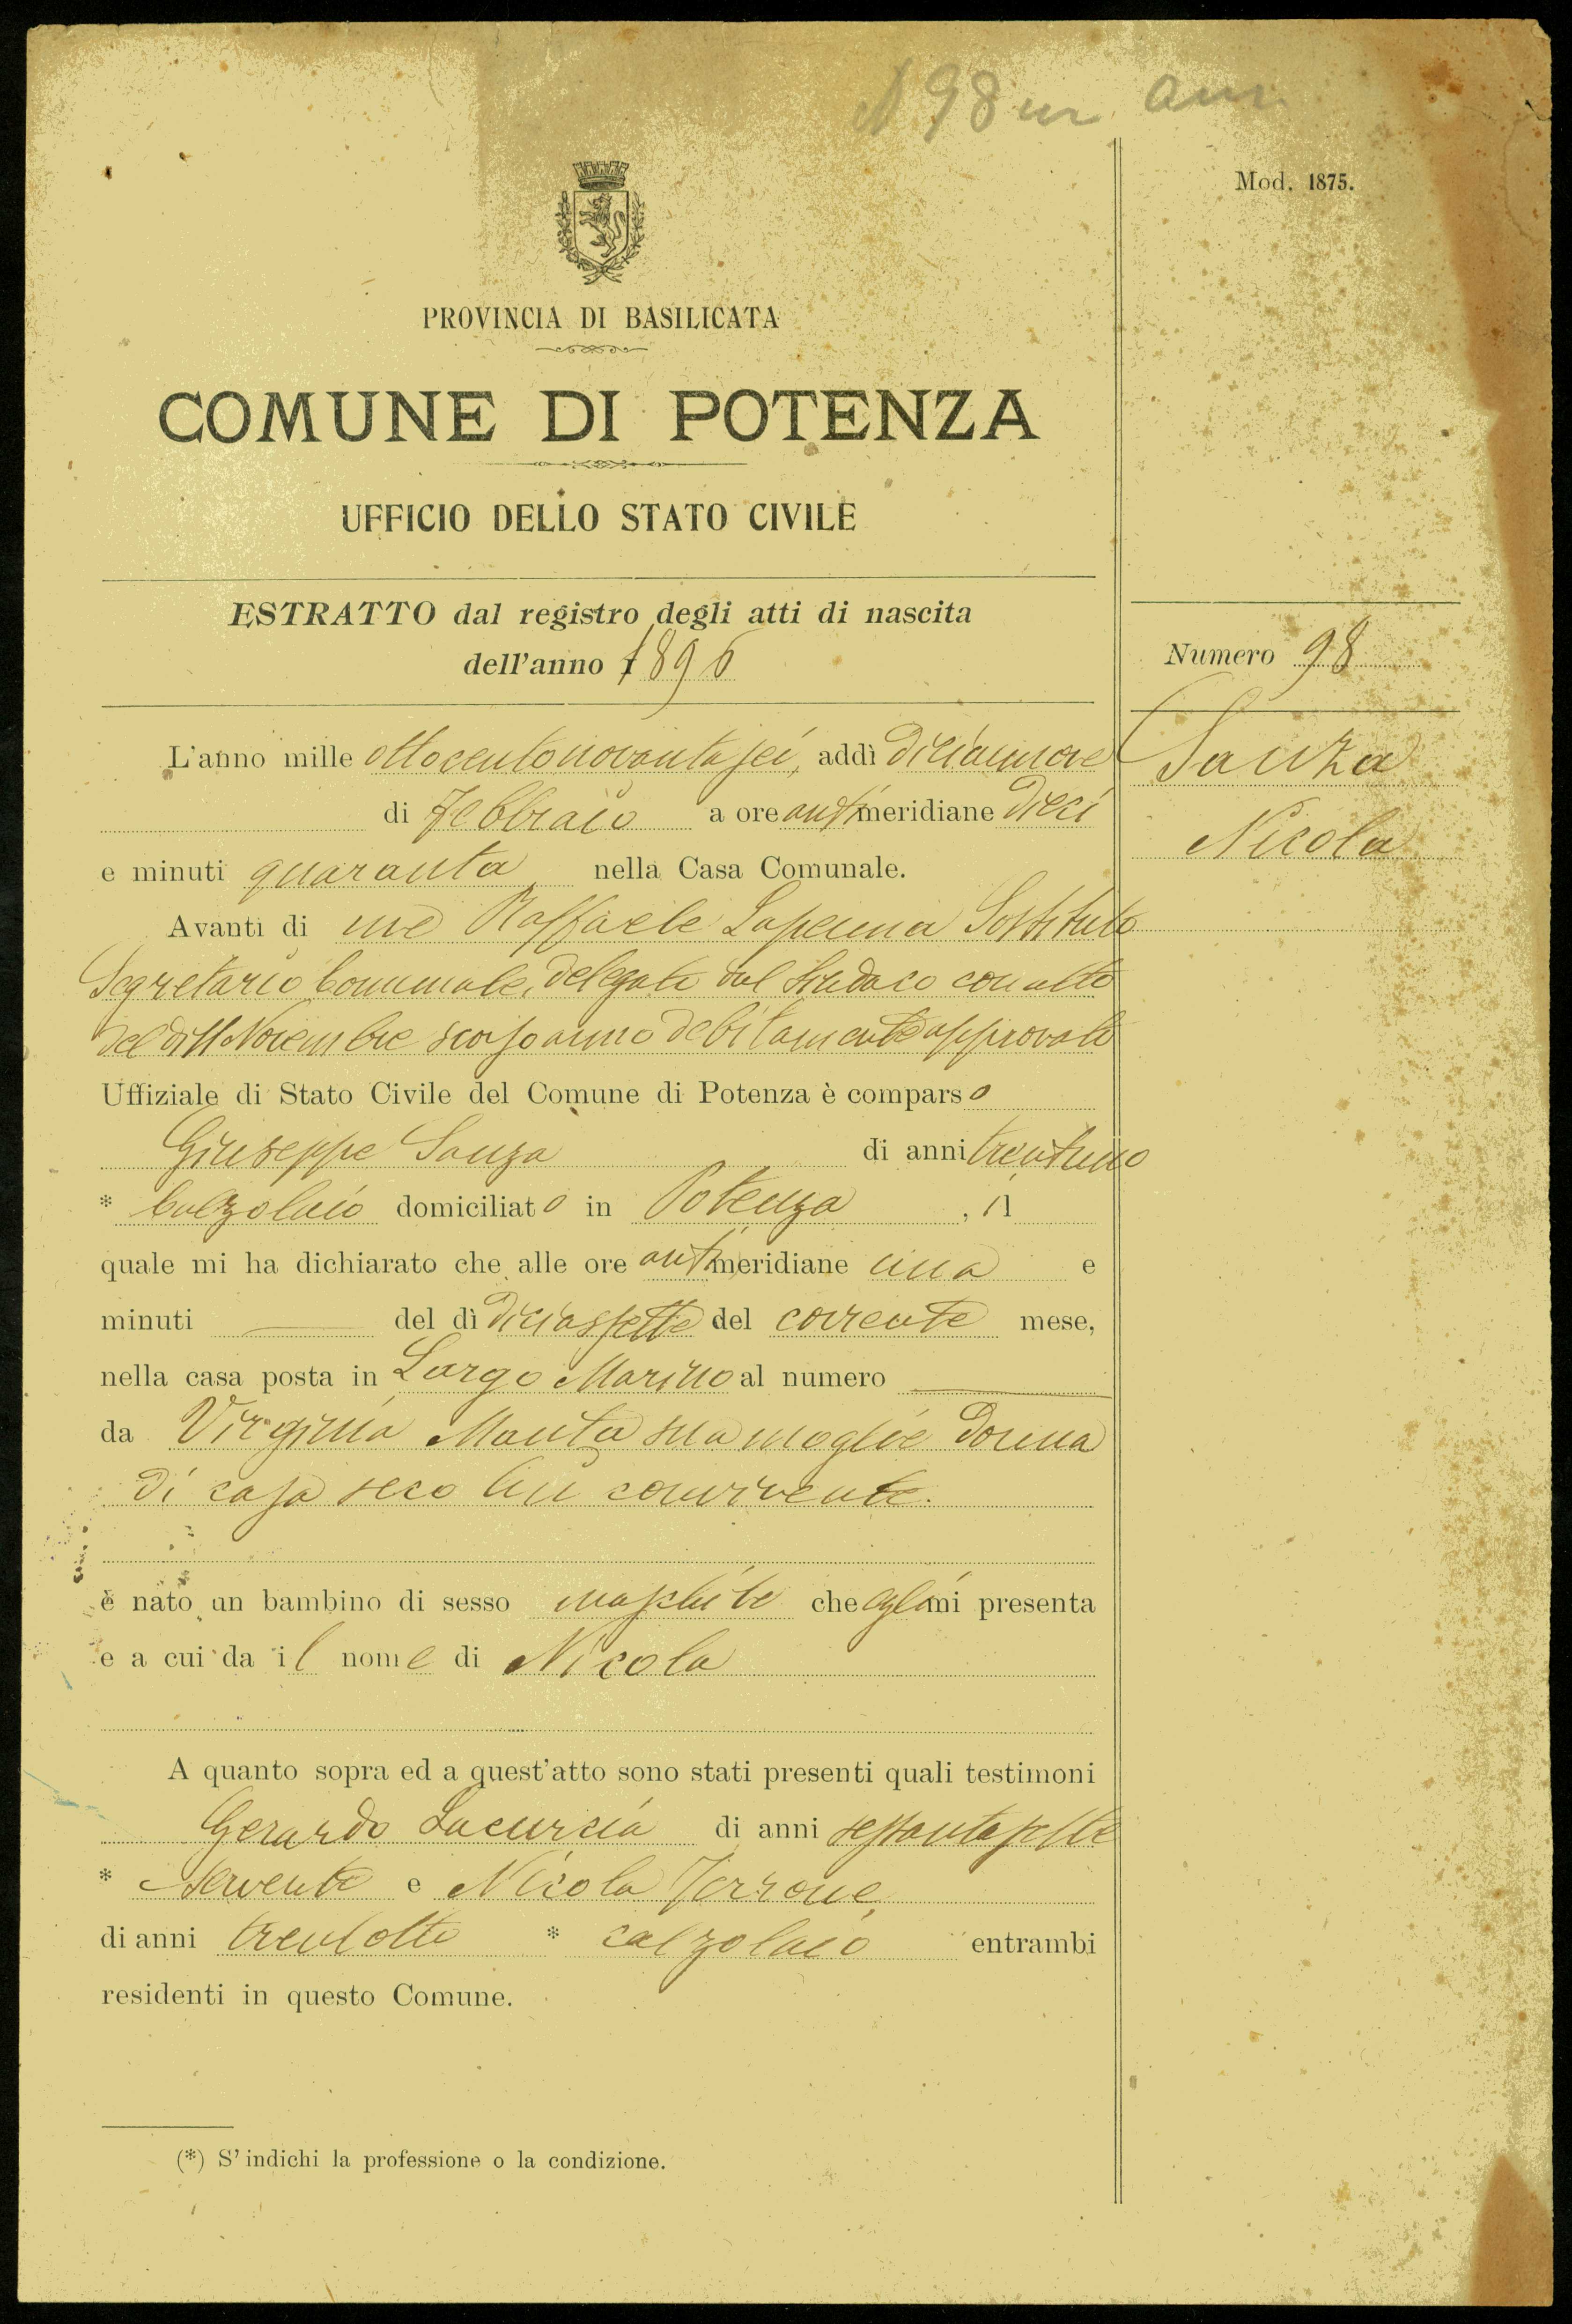 198
Mod. 1875.
PROVINCIA DI BASILICATA
COMUNE DI POTENZA
UFFICIO DELLO STATO CIVILE
ESTRATTO dal registro degli atti di nascita
dell'anno 1896
Numero 98
Sanza
Nicola
L'anno mille ottocentonovantasei, addì diciannove
di Febbraio a ore antimeridiane dieci
e minuti quaranta nella Casa Comunale.
Avanti di me Raffaele Lapenna Sostituto
Segretario Comunale, delegato dal Sindaco con atto
del dì 11 Novembre scorso anno debitamente approvato
Uffiziale di Stato Civile del Comune di Potenza è comparso
Giuseppe Sanza di anni trentuno
* Calzolaio domiciliato in Potenza, il
quale mi ha dichiarato che alle ore antimeridiane una e
minuti — del dì diciassette del corrente mese,
nella casa posta in Largo Marino al numero —
da Virginia Manta sua moglie donna
di casa seco lui convivente.
è nato un bambino di sesso maschile che egli mi presenta
e a cui da il nome di Nicola
A quanto sopra ed a quest'atto sono stati presenti quali testimoni
Gerardo Lacurcia di anni sessantasette
* servente e Nicola Terrone,
di anni trentotto * calzolaio entrambi
residenti in questo Comune.
(*) S'indichi la professione o la condizione.